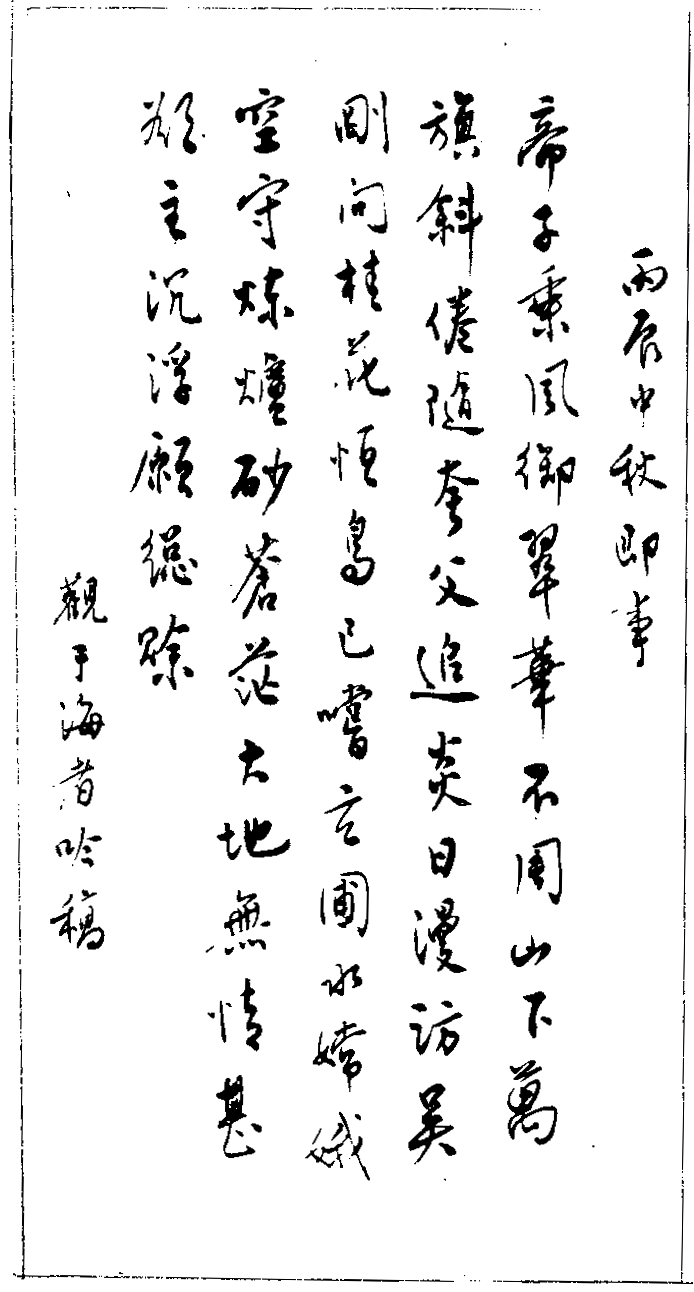 丙辰中秋即事
帝子乘風御翠華不周山下萬
旗斜倦隨夸父追炎日漫訪吳
剛問桂花恒鳥已嚐玄圃水嫦娥
空守煉爐砂蒼茫大地無情甚
欲主沉浮願總賒
觀于海者吟稿